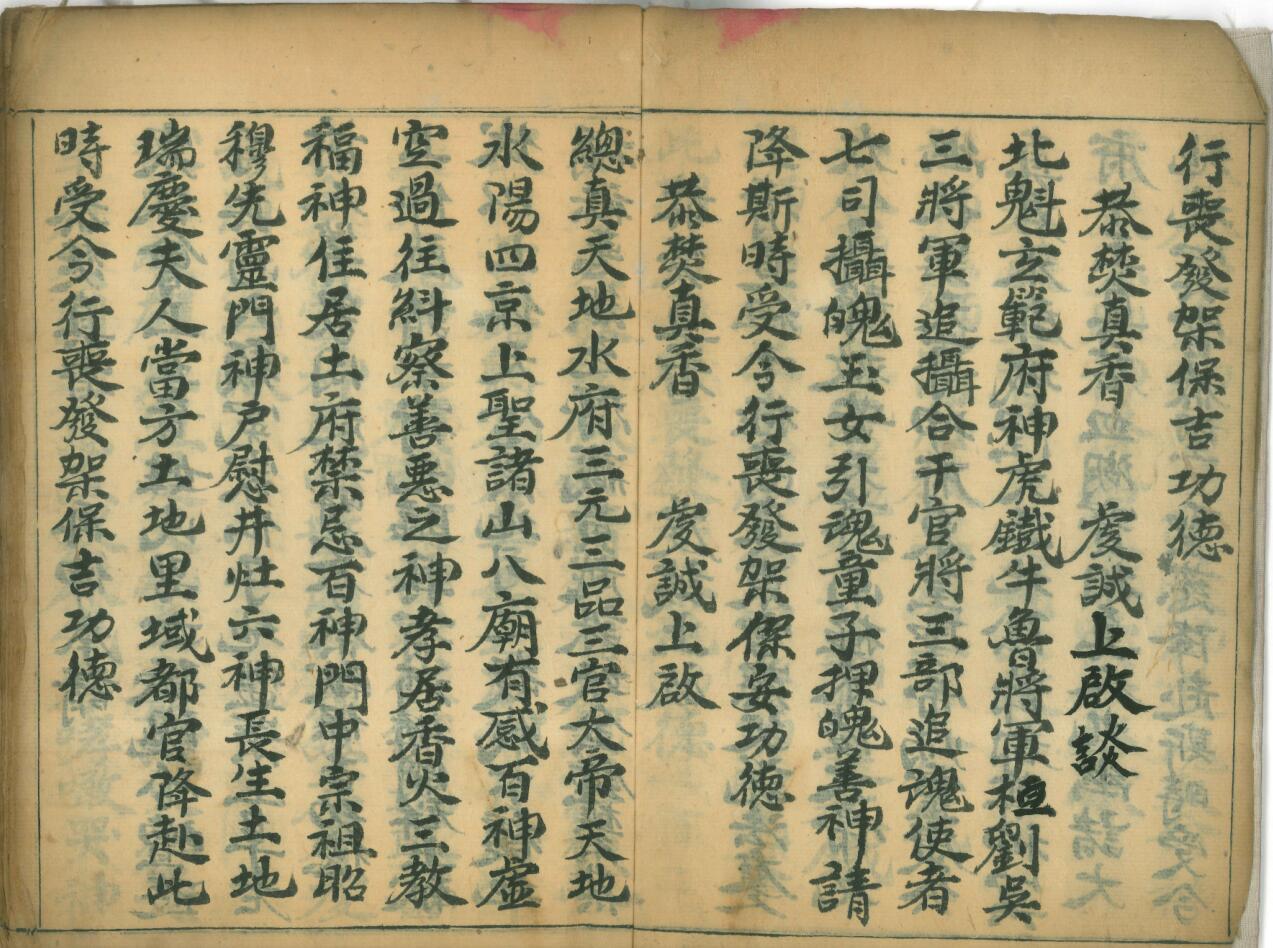 行喪發架保吉功德
恭焚真香　虔誠上啟談
北魁玄範府神虎鐵牛魯將軍桓劉吳
三將軍追攝合干官將三部追魂使者
七司攝魄玉女引魂童子押魄善神請
降斯時受今行喪發架保安功德
恭焚真香　虔誠上啟
總真天地水府三元三品三官大帝天地
水陽四京上聖諸山八廟有感百神虛
空過往糾察善惡之神孝居香火三教
福神住居土府禁忌百神門中宗祖昭
穆先靈門神户慰井灶六神長生土地
瑞慶夫人當方土地里域都官降赴此
時受今行喪發架保吉功德